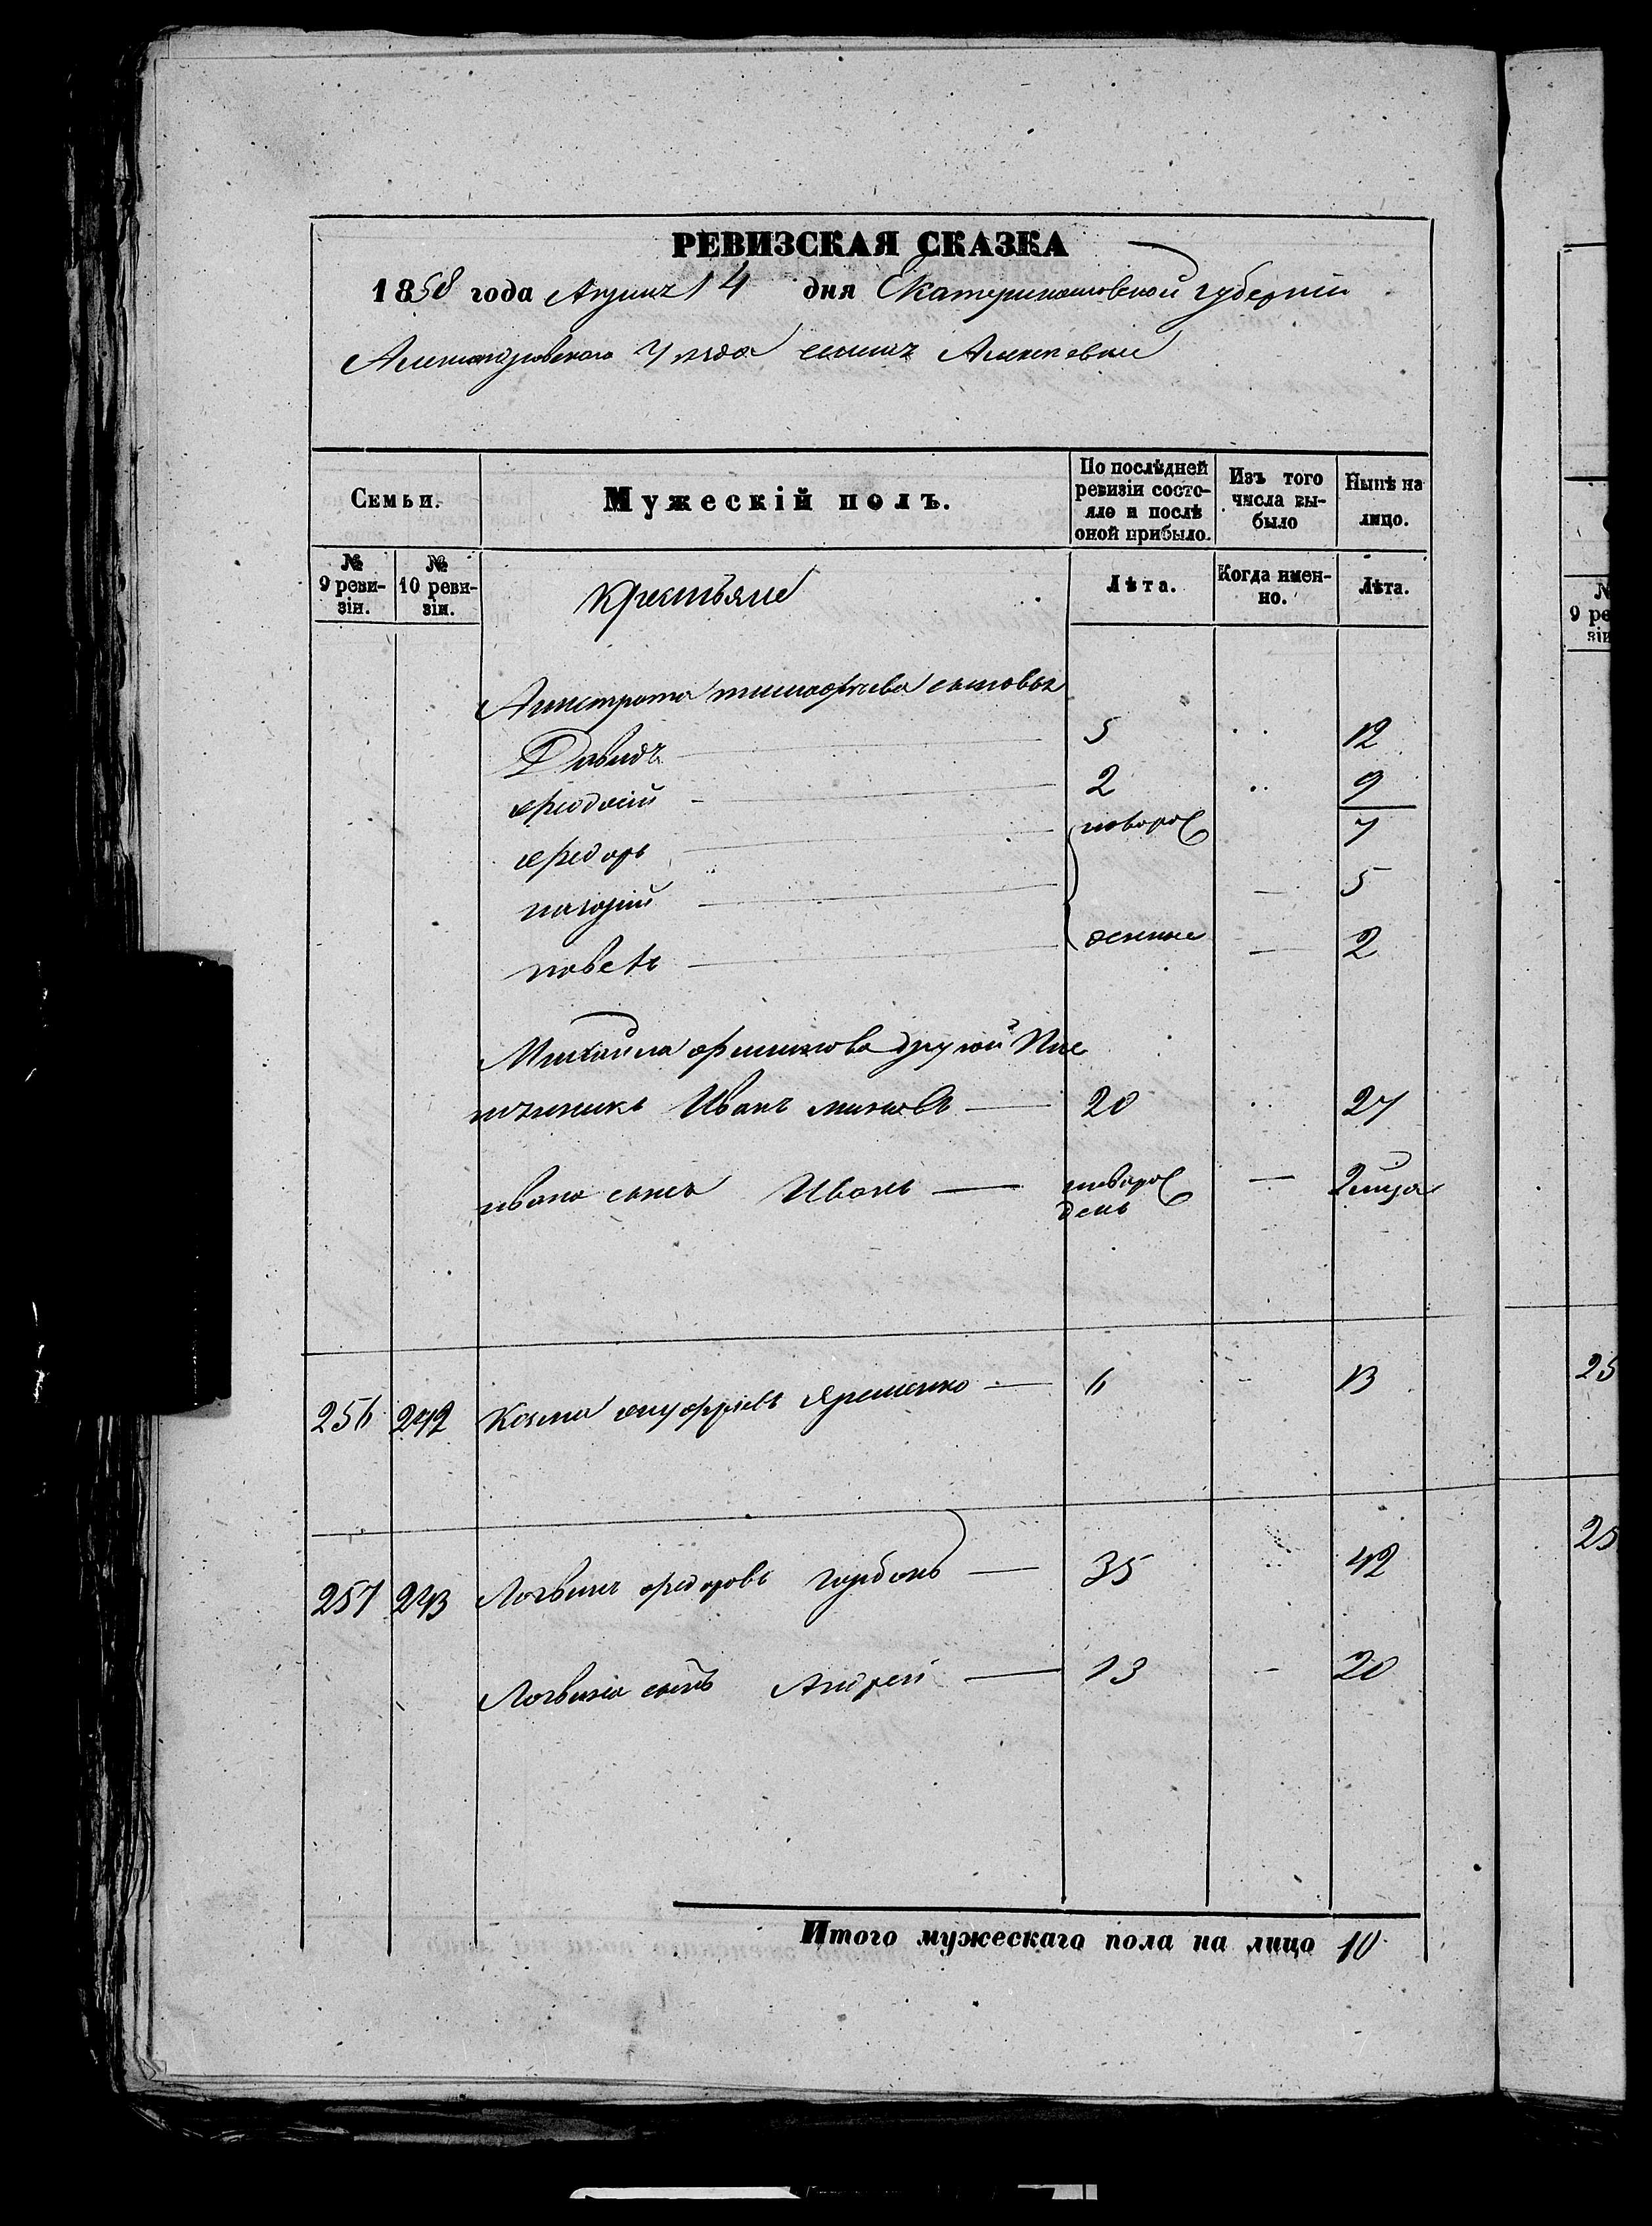 РЕВИЗСКАЯ СКАЗКА
1858 года Апреля 14 дня Екатеринославской губернии
Александровского Уезда селения Алексеевки
Семьи.
Мужескій полъ.
По послѣдней ревизіи состояло и послѣ оной прибыло.
Изъ того числа выбыло
Нынѣ на лицо.
№ 9 ревизіи.
№ 10 ревизіи.
Крестьяне
Лѣта.
Когда именно.
Лѣта.
Тимофеева сыновья
Давидъ 5 12
Феодосий 2 9
Федоръ новоро 7
5
Павелъ 2
Михайла Филипова другой Пле
мянникъ Иванъ 20 27
Ивана сынъ Иванъ новоро день 2 мца
256 242 Козма Онуфриевъ Яременко 6 13
257 243 Логвинъ Федоровъ Горбонь 35 42
Логвина сынъ Андрей 13 20
Итого мужескаго пола на лицо 10
25
25
№
9 ре
зіи